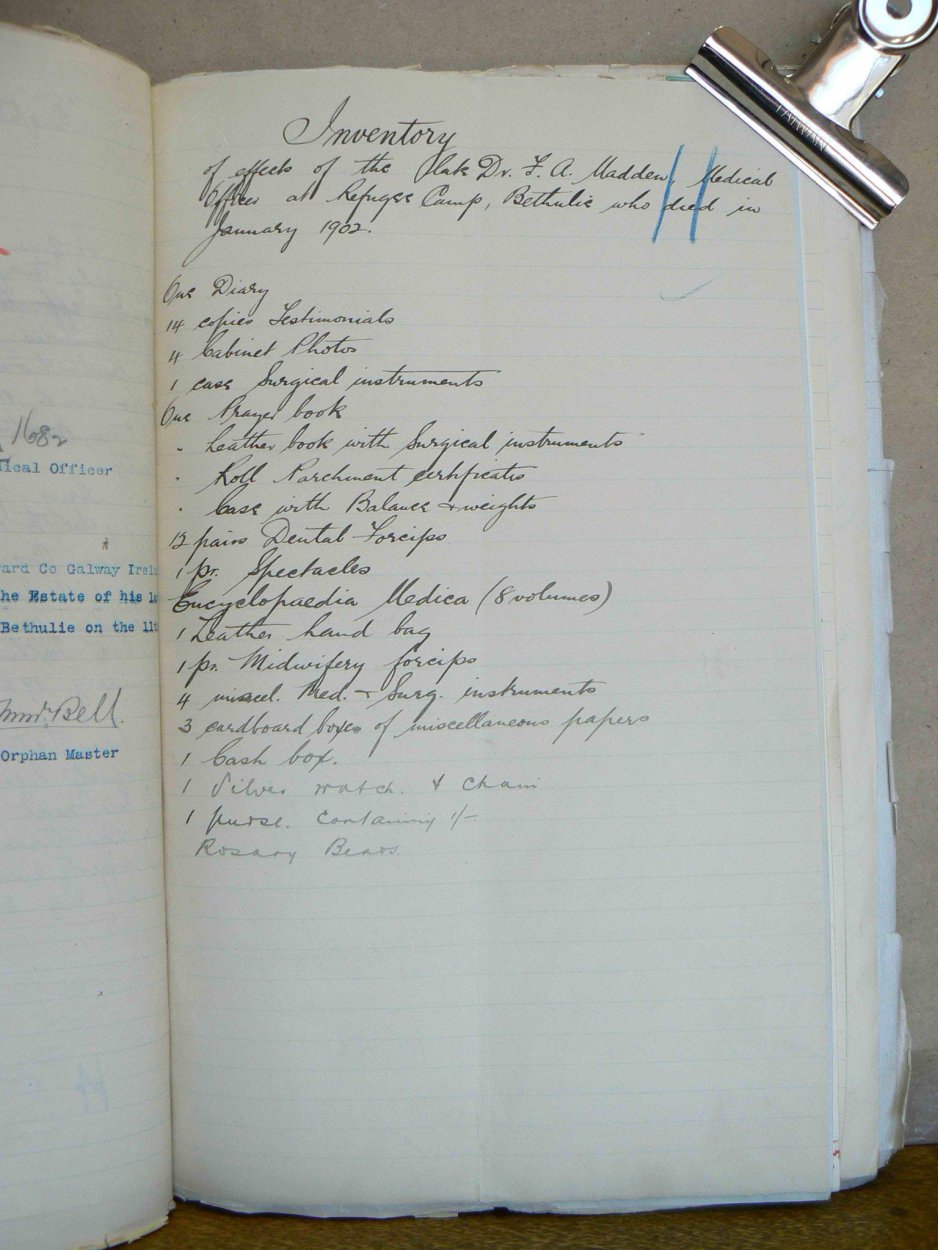 Inventory
of effects of the late Dr. F. A. Madden, Medical
Officer at Refugee Camp, Bethulie who died in
January 1902.
One Diary
14 copies Testimonials
4 Cabinet Photos
1 case Surgical instruments
One Prayer book
" Leather book with Surgical instruments
" Roll Parchment certificates
" Case with Balance & weights
12 pairs Dental Forceps
1 pr. Spectacles
Encyclopaedia Medica (8 volumes)
1 Leather hand bag
1 pr. Midwifery forceps
4 miscel. Med. & Surg. instruments
3 cardboard boxes of miscellaneous papers
1 Cash box.
1 Silver watch & chain
1 purse. containing 1/-
Rosary Beads.
1682
ical Officer
ard Co Galway Irel
he Estate of his la
Bethulie on the 11t
Bell.
Orphan Master
TAIWAN